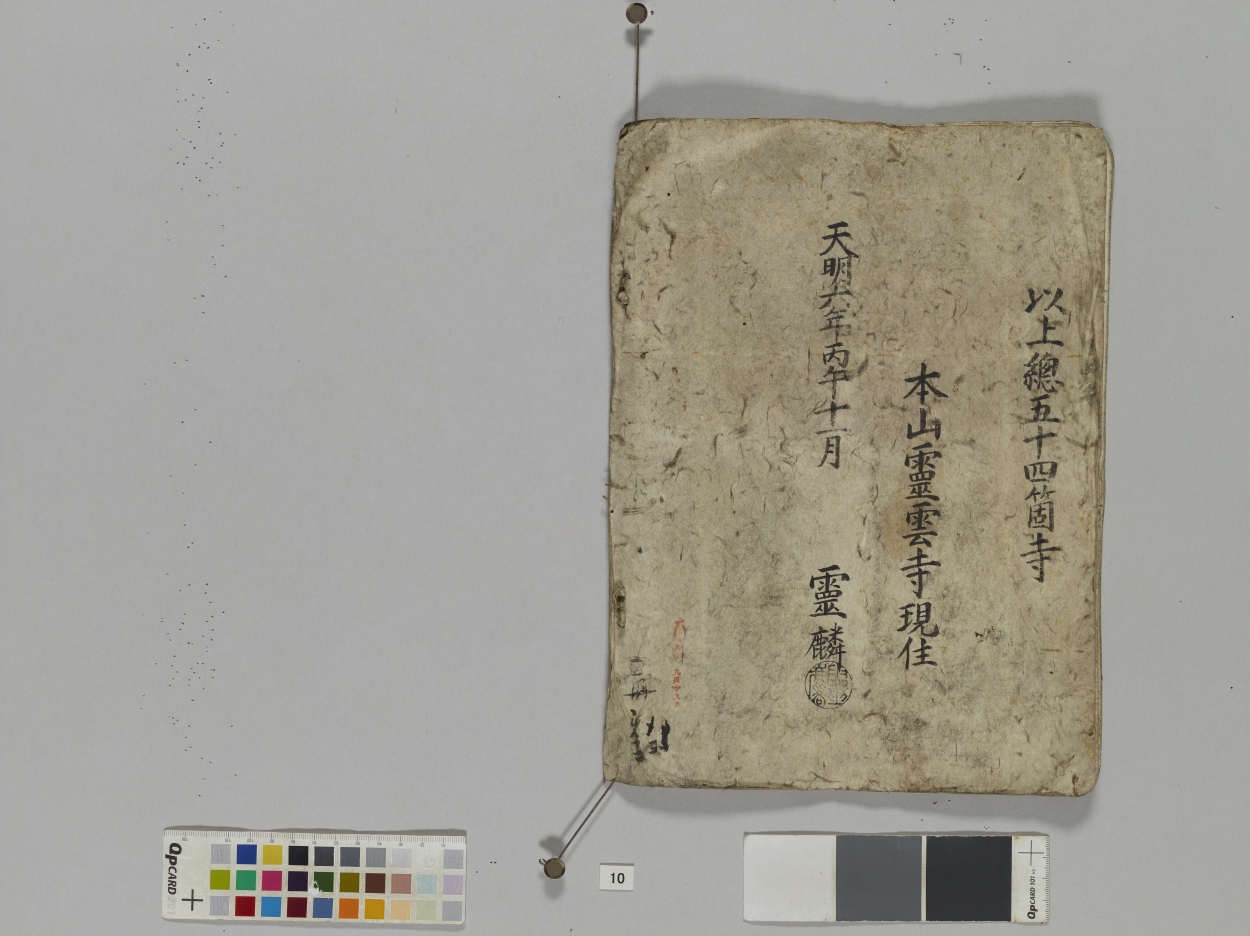 以上總五十四箇寺
本山靈雲寺現住
天明六年丙午十一月
靈麟
QPCARD 201
10
QPCARD 101